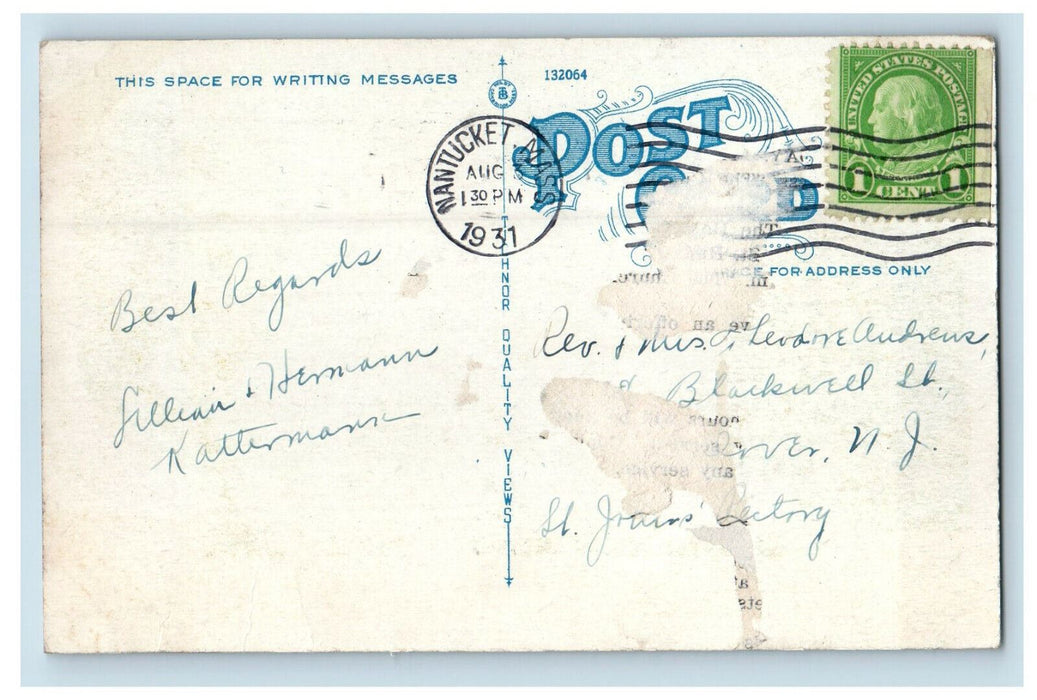 THIS SPACE FOR WRITING MESSAGES
132064
POST
NANTUCKET MASS
AUG
1 30 PM
1931
UNITED STATES POSTAGE
1 CENT 1
FOR ADDRESS ONLY
QUALITY VIEWS
Best Regards
Lillian & Hermann
Kattermann
Rev. & Mrs. Theodore Andrews,
Blackwell St.,
over, N. J.
St. Johns' Rectory
ve an
any service